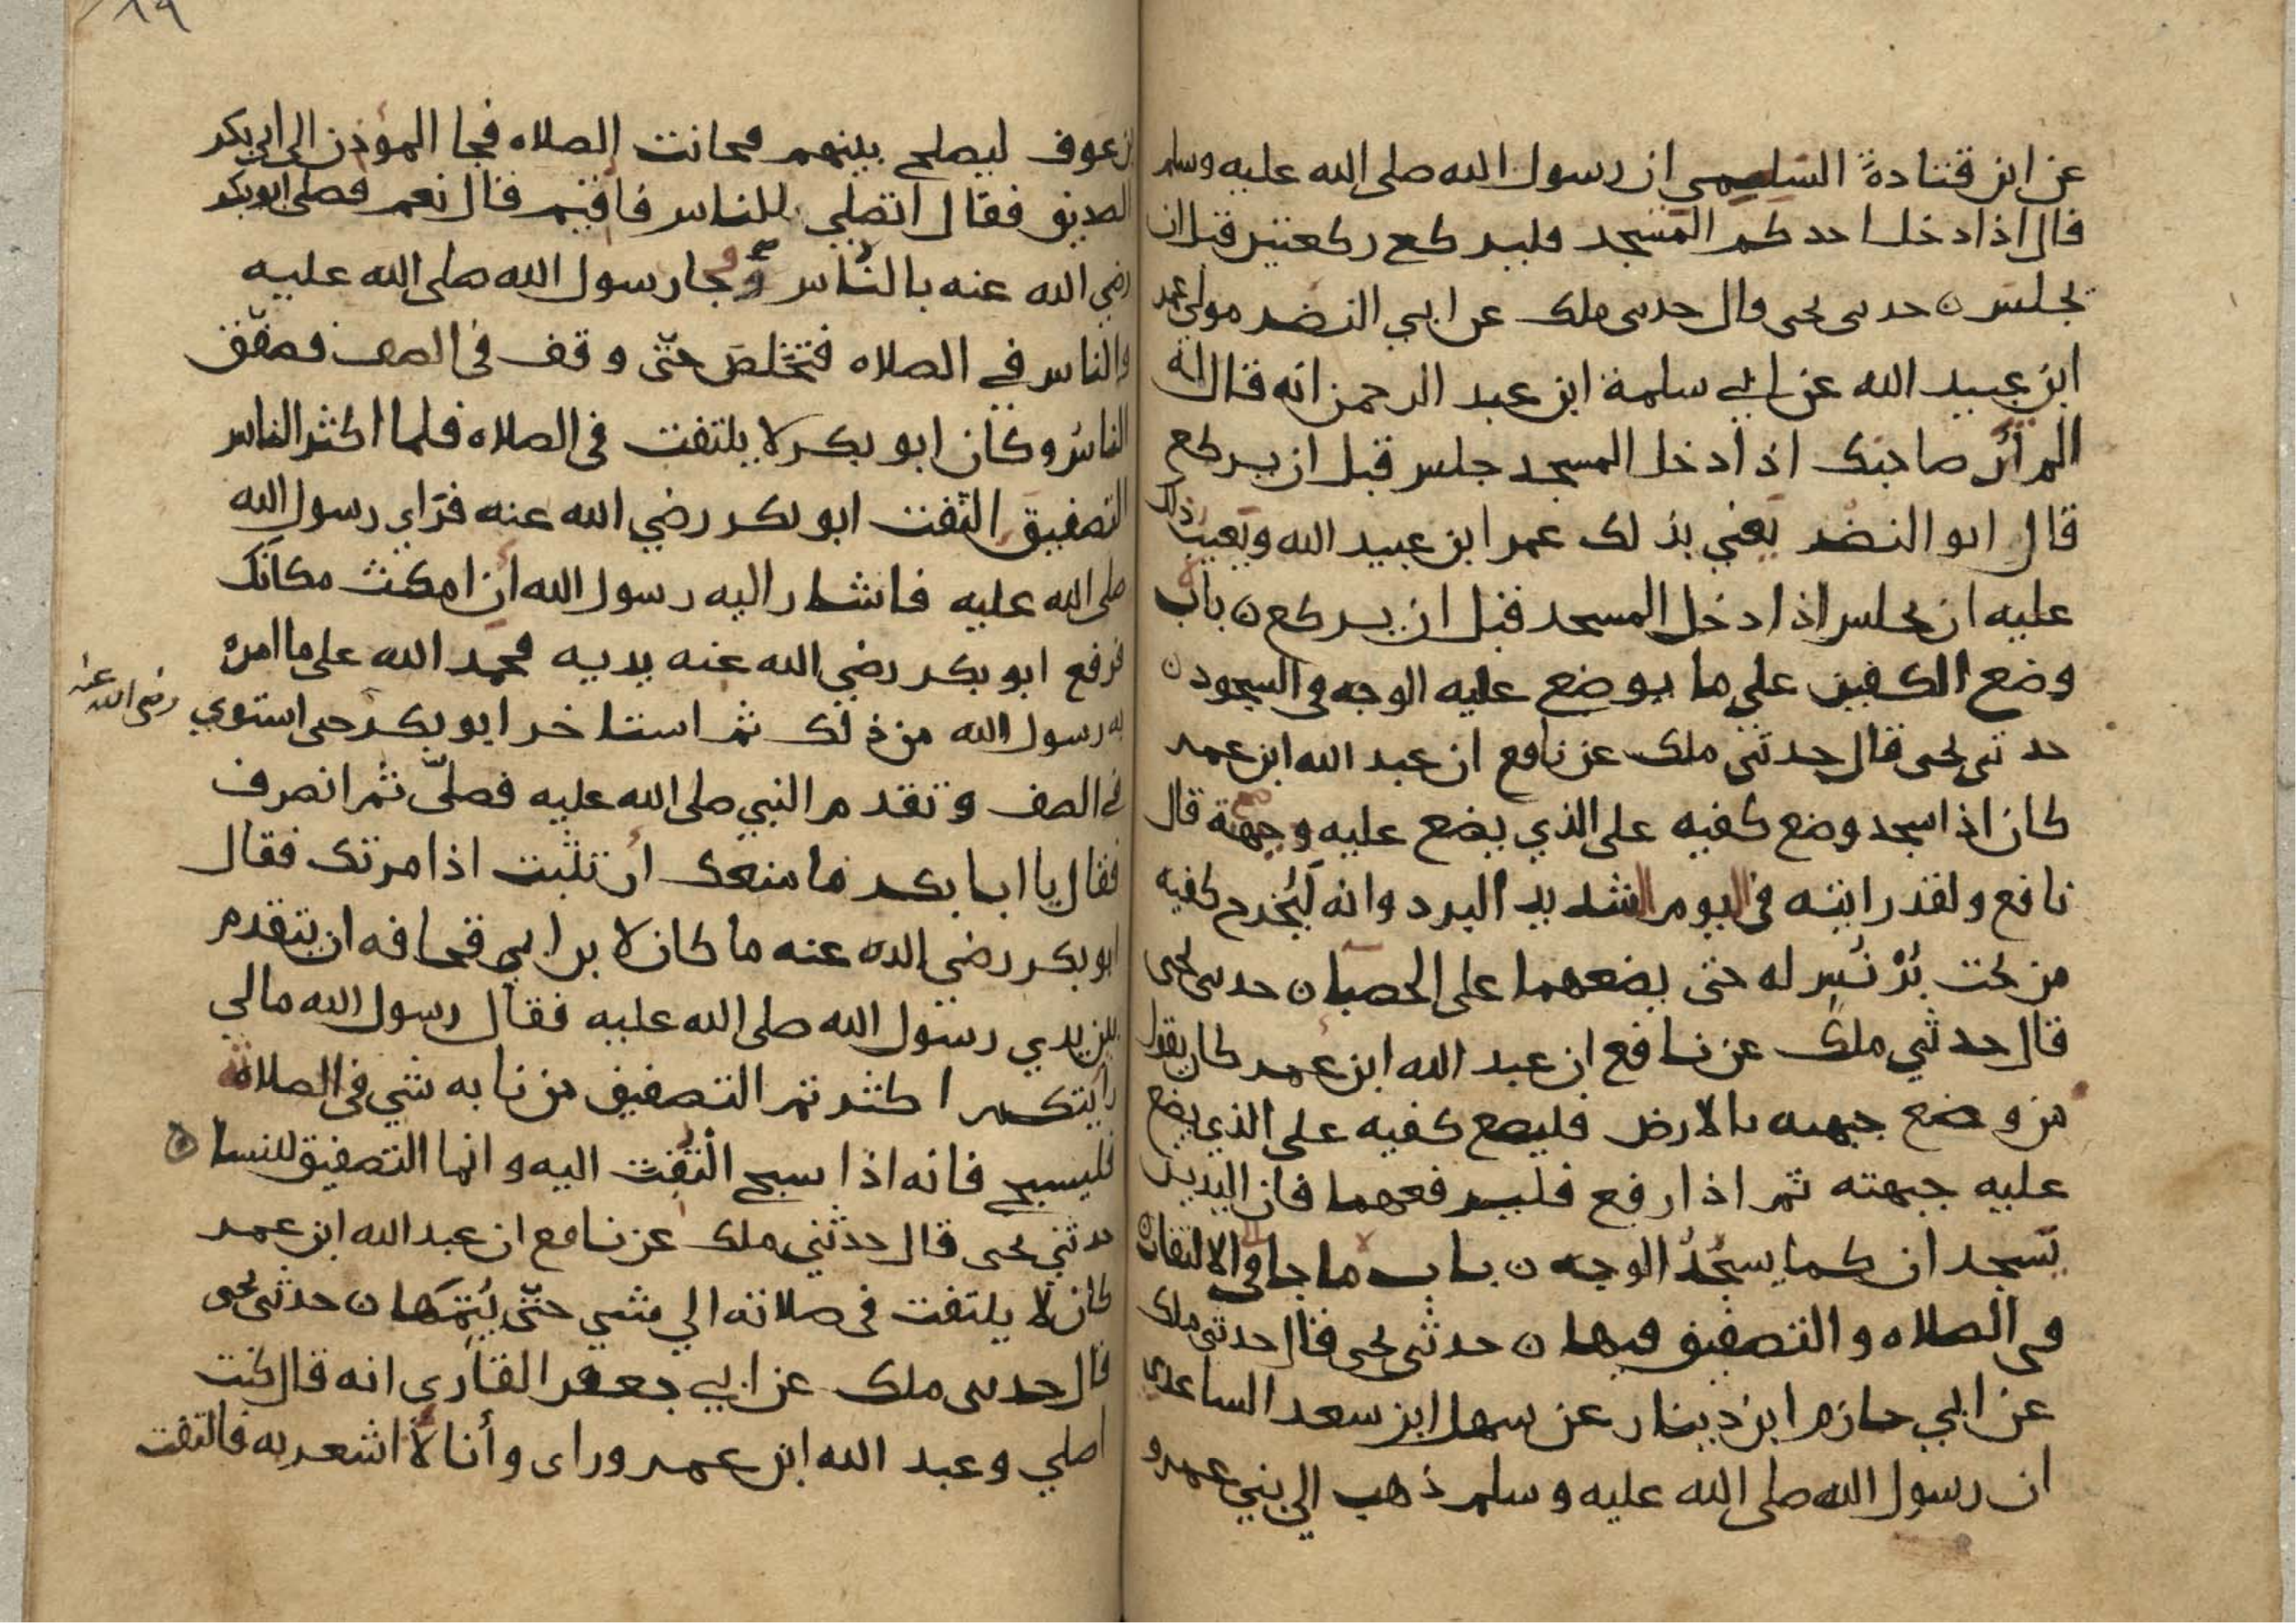 عن ابن قتادة السلمي ان رسول الله صلى الله عليه وسلم
قال اذا دخل احدكم المسجد فليركع ركعتين قبل ان
يجلس ن حدثني يحيى قال حدثني ملك عن ابي النضر مولى عمر
ابن عبيد الله عن ابي سلمة ابن عبد الرحمن انه قال له
الم أر صاحبك اذا دخل المسجد جلس قبل ان يركع
قال ابو النضر يعني بذلك عمر ابن عبيد الله ويعيب ذلك
عليه ان يجلس اذا دخل المسجد قبل ان يركع ن باب
وضع الكفين على ما يوضع عليه الوجه في السجود ن
حدثني يحيى قال حدثني ملك عن نافع ان عبد الله ابن عمر
كان اذا سجد وضع كفيه على الذي يضع عليه وجهه قال
نافع ولقد رايته في اليوم الشديد البرد وانه ليخرج كفيه
من تحت بُرْنُس له حتى يضعهما على الحصبا ن حدثني يحيى
قال حدثني ملك عن نافع ان عبد الله ابن عمر كان يقول
من وضع جبهته بالارض فليضع كفيه على الذي يضع
عليه جبهته ثم اذا رفع فليرفعهما فان اليدين
تسجدان كما يسجُدُ الوجه ن باب ما جا في الالتفات
في الصلاه والتصفيق فيها ن حدثني يحيى قال حدثني ملك
عن ابي حازم ابن دينار عن سهل ابن سعد الساعدي
ان رسول الله صلى الله عليه وسلم ذهب الي بني عمرو
١٩
بن عوف ليصلح بينهم فحانت الصلاه فجا المؤذن الى ابي بكر
الصديق فقال اتصلي للناس فاقيم قال نعم فصلى ابو بكر
رضي الله عنه بالناس وجا رسول الله صلى الله عليه
والناس في الصلاه فتخلص حتّى وقف في الصف فصفّق
الناسُ وكان ابو بكر لا يلتفت في الصلاه فلما اكثر الناس
التصفيق التفت ابو بكر رضي الله عنه فرَاي رسول الله
صلى الله عليه فاشار اليه رسول الله ان امكث مكانك
فرفع ابو بكر رضي الله عنه يديه فحمد الله على ما امره
به رسول الله من ذلك ثم استاخر ابو بكر حتى استوي
رضي الله عنه
في الصف وتقدم النبي صلى الله عليه فصلّى ثم انصرف
فقال يا ابا بكر ما منعك ان تثبت اذ امرتك فقال
ابو بكر رضي الله عنه ما كان لابن ابي قحافه ان يتقدم
بين يدي رسول الله صلى الله عليه فقال رسول الله مالي
رايتكم اكثرتم التصفيق من نابه شي في الصلاة
فليسبح فانه اذا سبح التُفت اليه وانما التصفيق للنسا ن
حدثني يحيى قال حدثني ملك عن نافع ان عبد الله ابن عمر
كان لا يلتفت في صلاته الي شي حتّى يُتمّها ن حدثني يحيى
قال حدثني ملك عن ابي جعفر القاري انه قال كنت
اصلي وعبد الله ابن عمر وراى وأنا لا اشعر به فالتفت